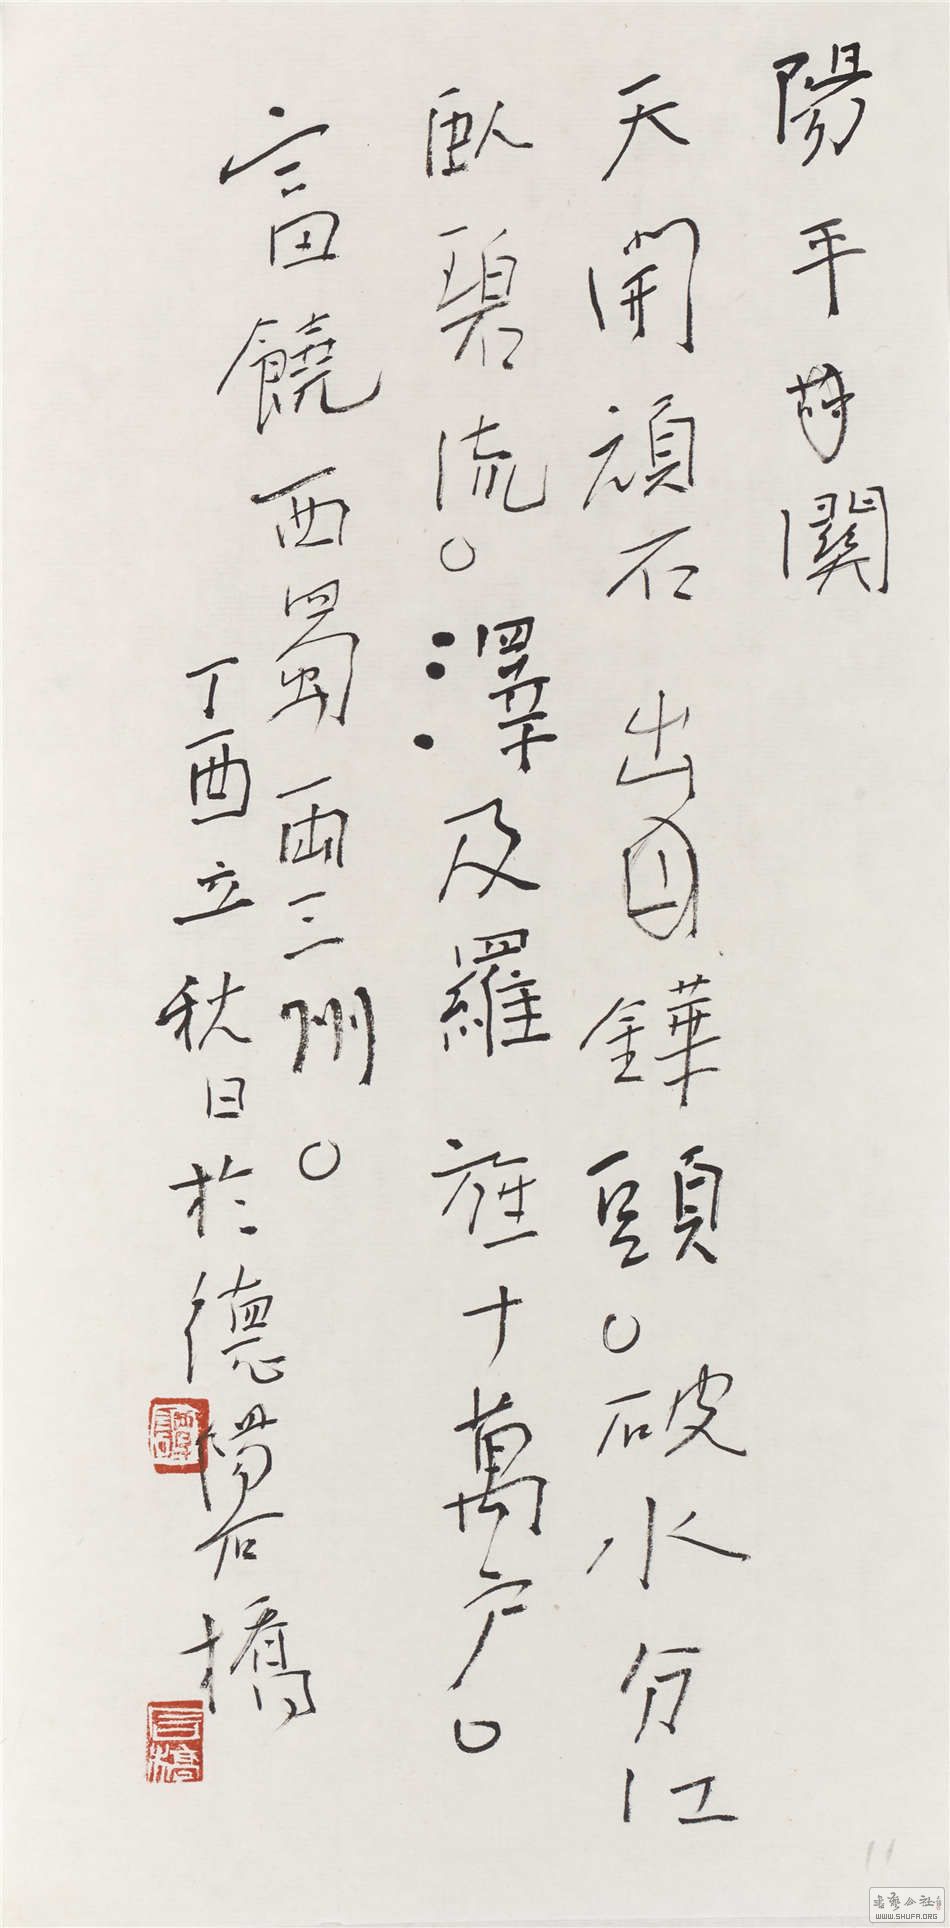 陽平關
天開頑石出鏵頭。破水分江
臥碧流。澤及羅旌十萬戶。
富饒西蜀兩三州。
丁酉立秋日於德陽石橋
11
書藝公社
WWW.SHUFA.ORG